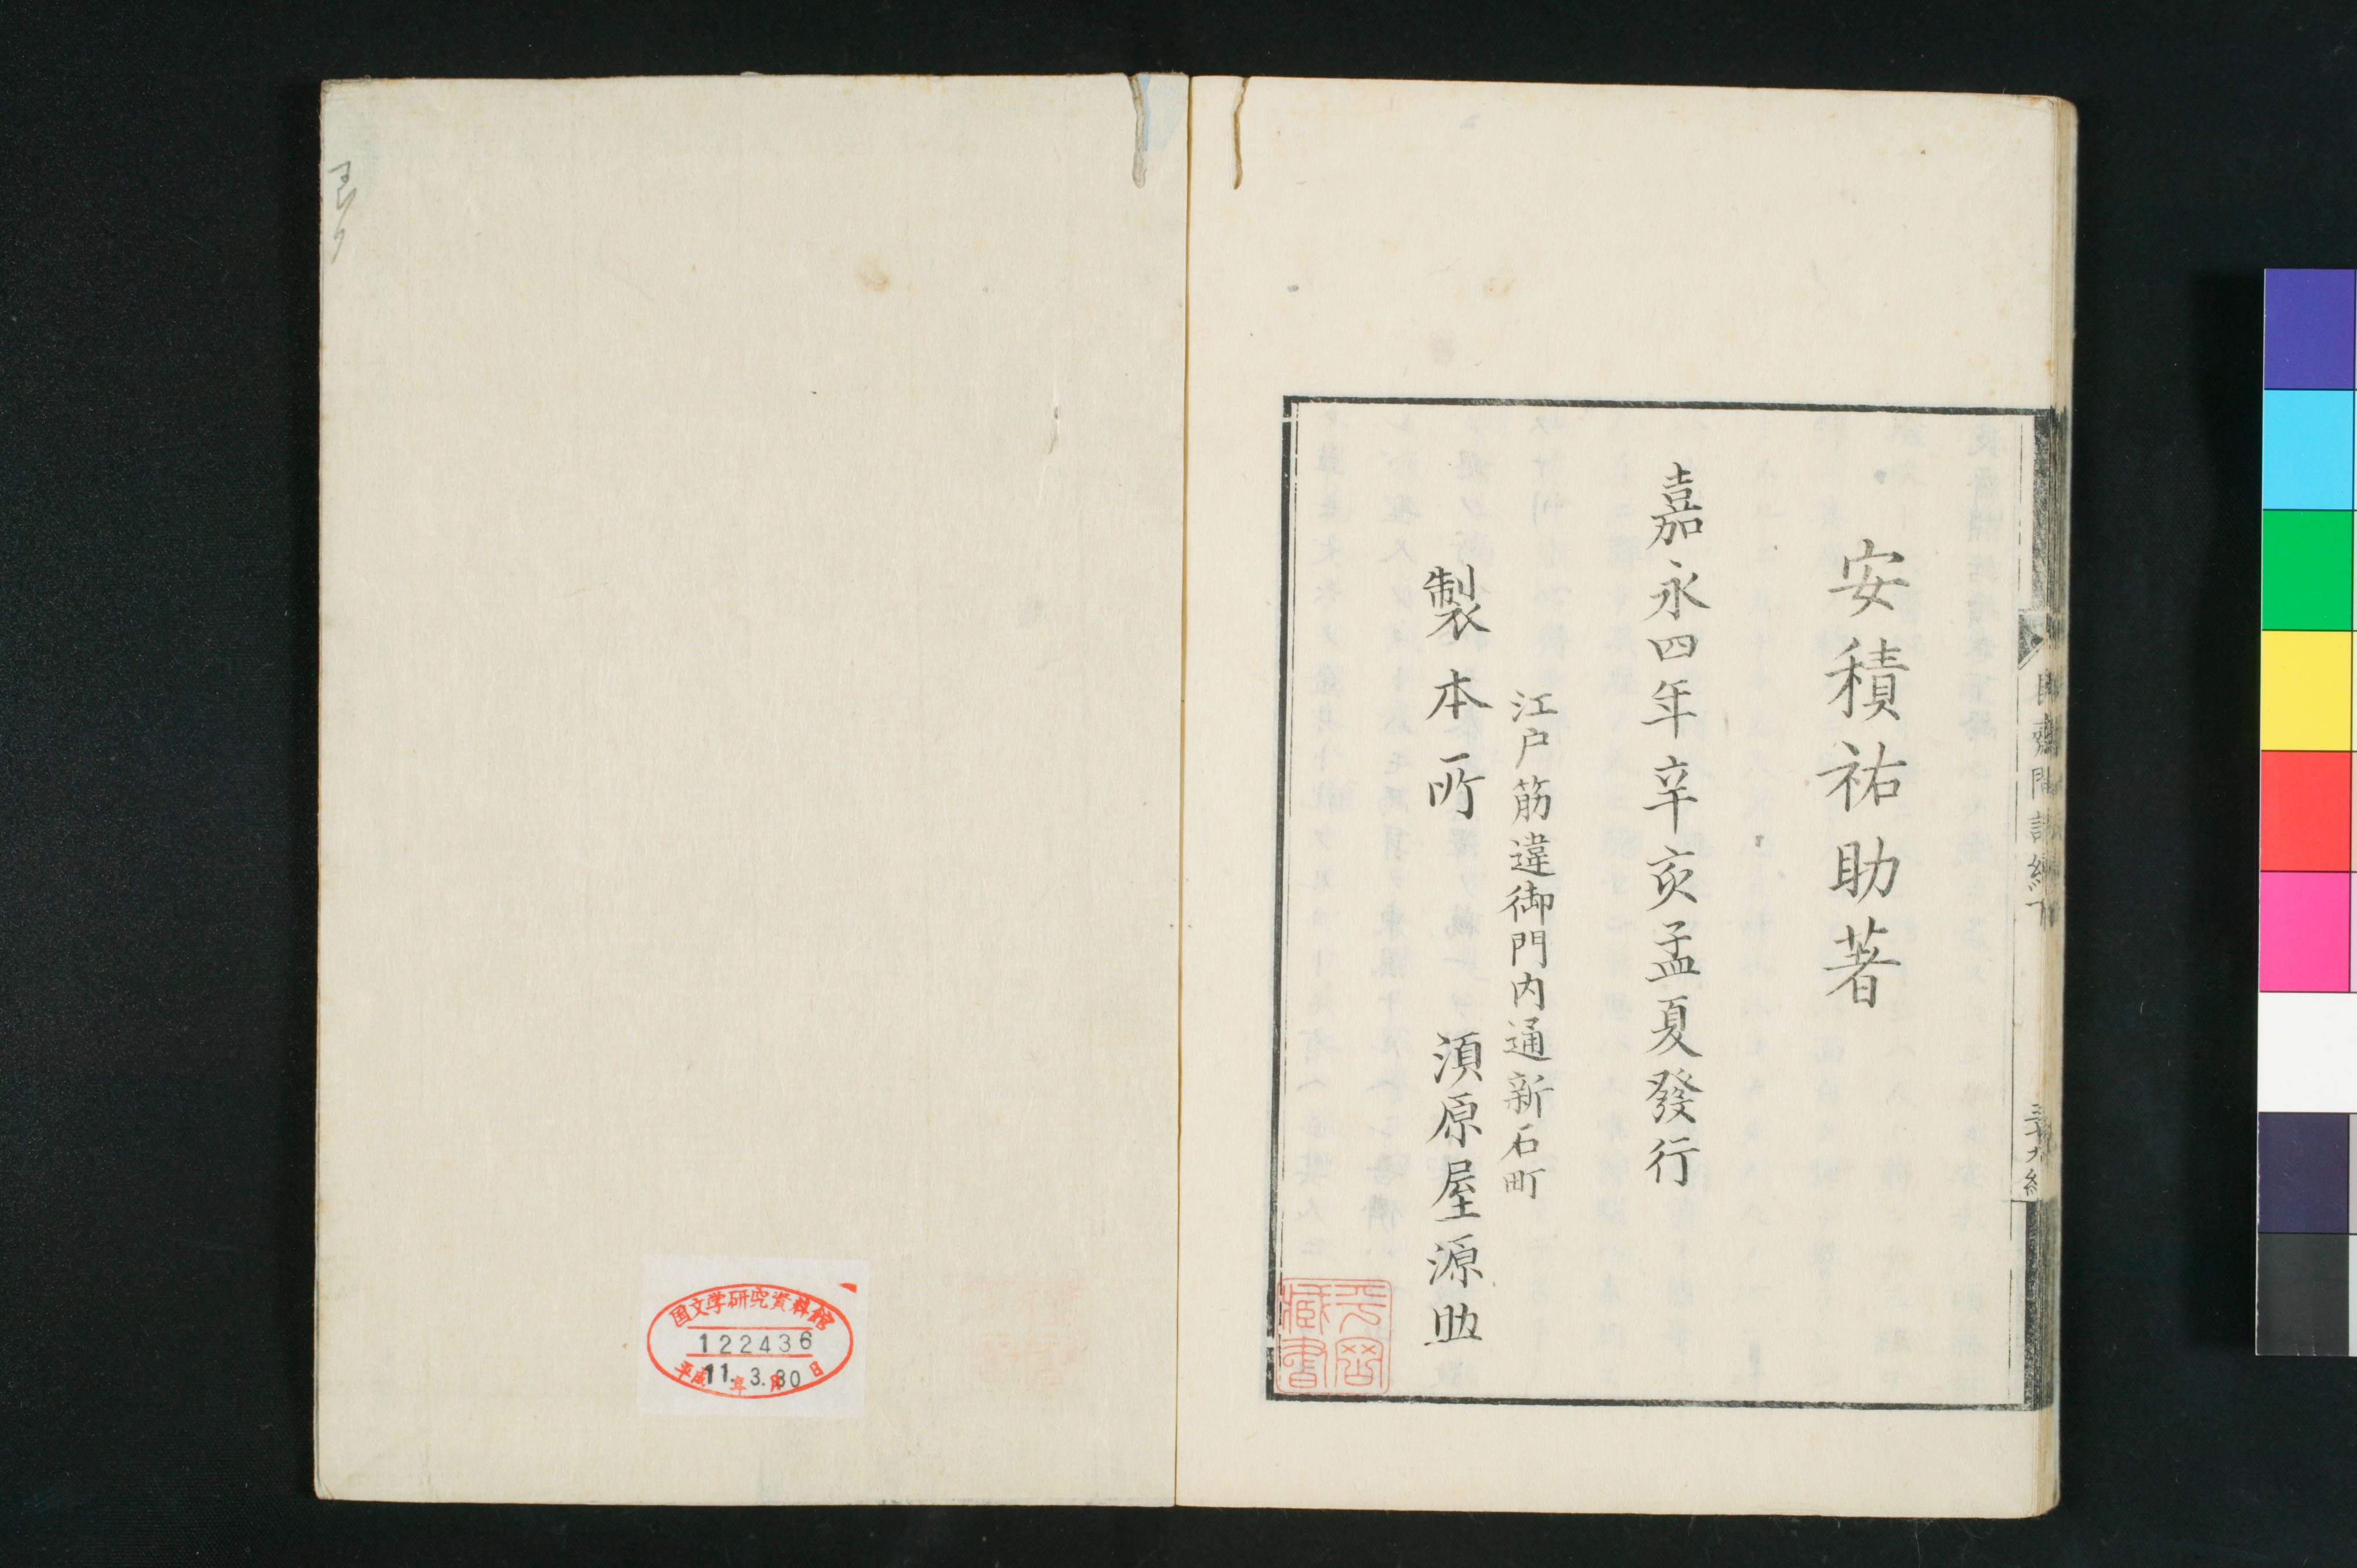 艮齋間話續下
三十九終
安積祐助著
嘉永四年辛亥孟夏發行
江戸筋違御門内通新石町
製本所 須原屋源助
藏書
国文学研究資料館
122436
平成11年3月30日